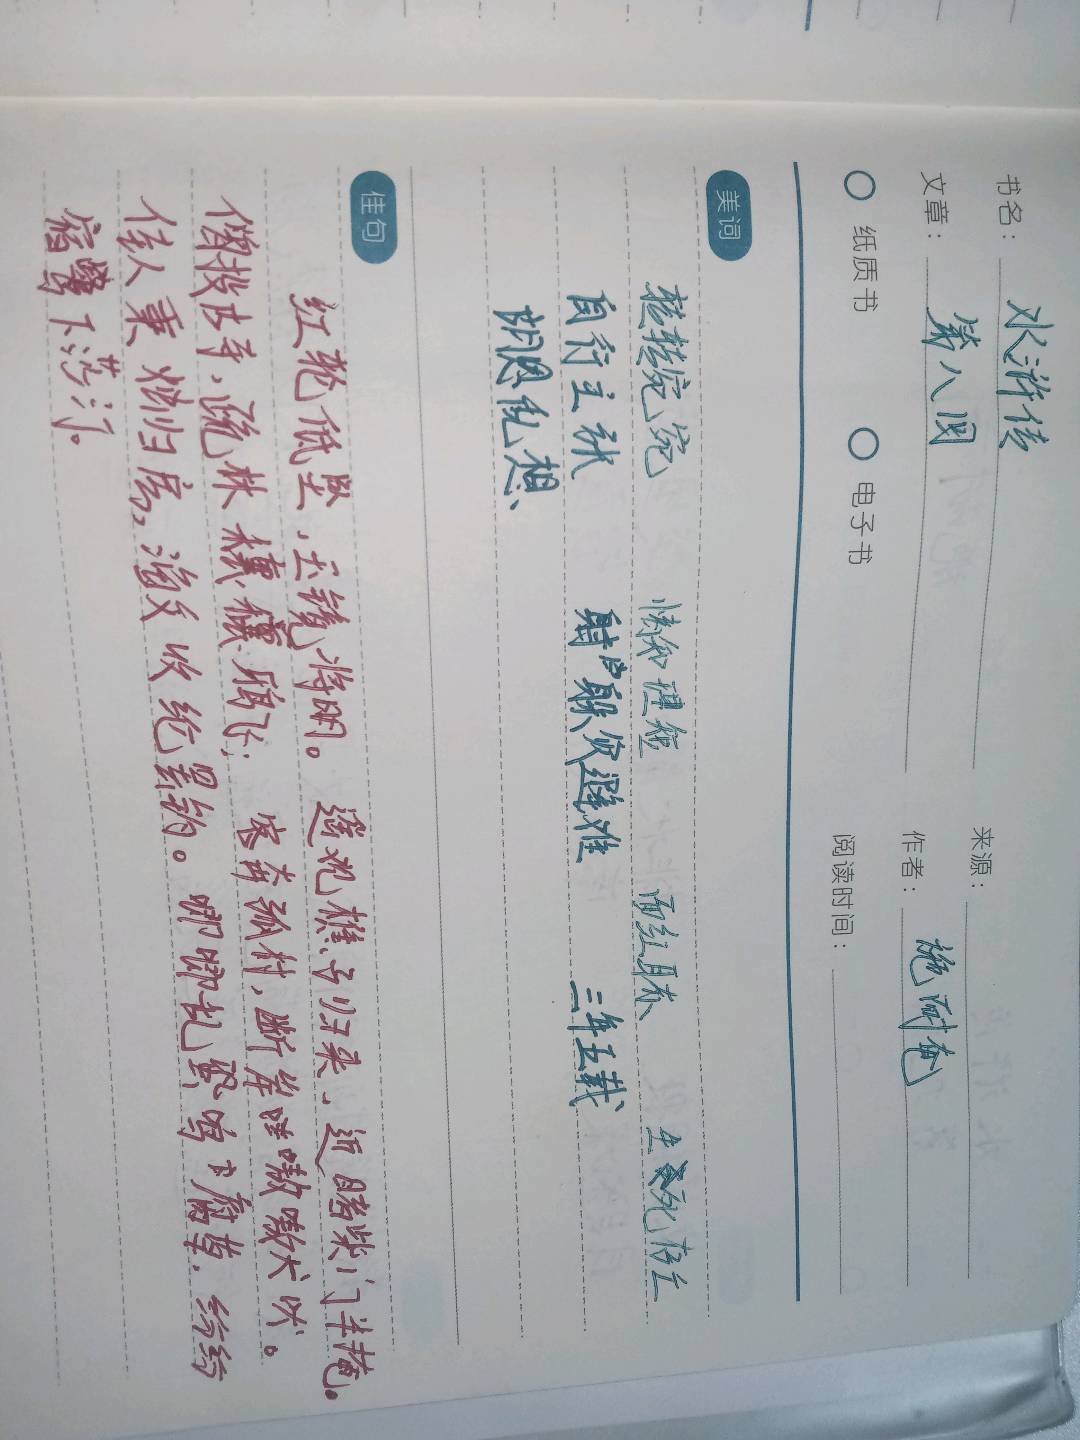 书名：水浒传
来源：
文章：第八回
作者：施耐庵
纸质书 电子书 阅读时间：
美词
转转宛宛 情知理短 面红耳赤 生死存亡
自行主张 财 躲灾避难 三年五载
胡思乱想
佳句
红轮低坠，玉镜将明。遥观樵子归来，近睹柴门半掩。
僧投古寺，疏林穰穰鸦飞；客奔孤村，断岸嗷嗷犬吠。
佳人秉烛归房，渔父收纶罢钓。唧唧乱蛩鸣腐草，纷纷
宿鹭下莎汀。